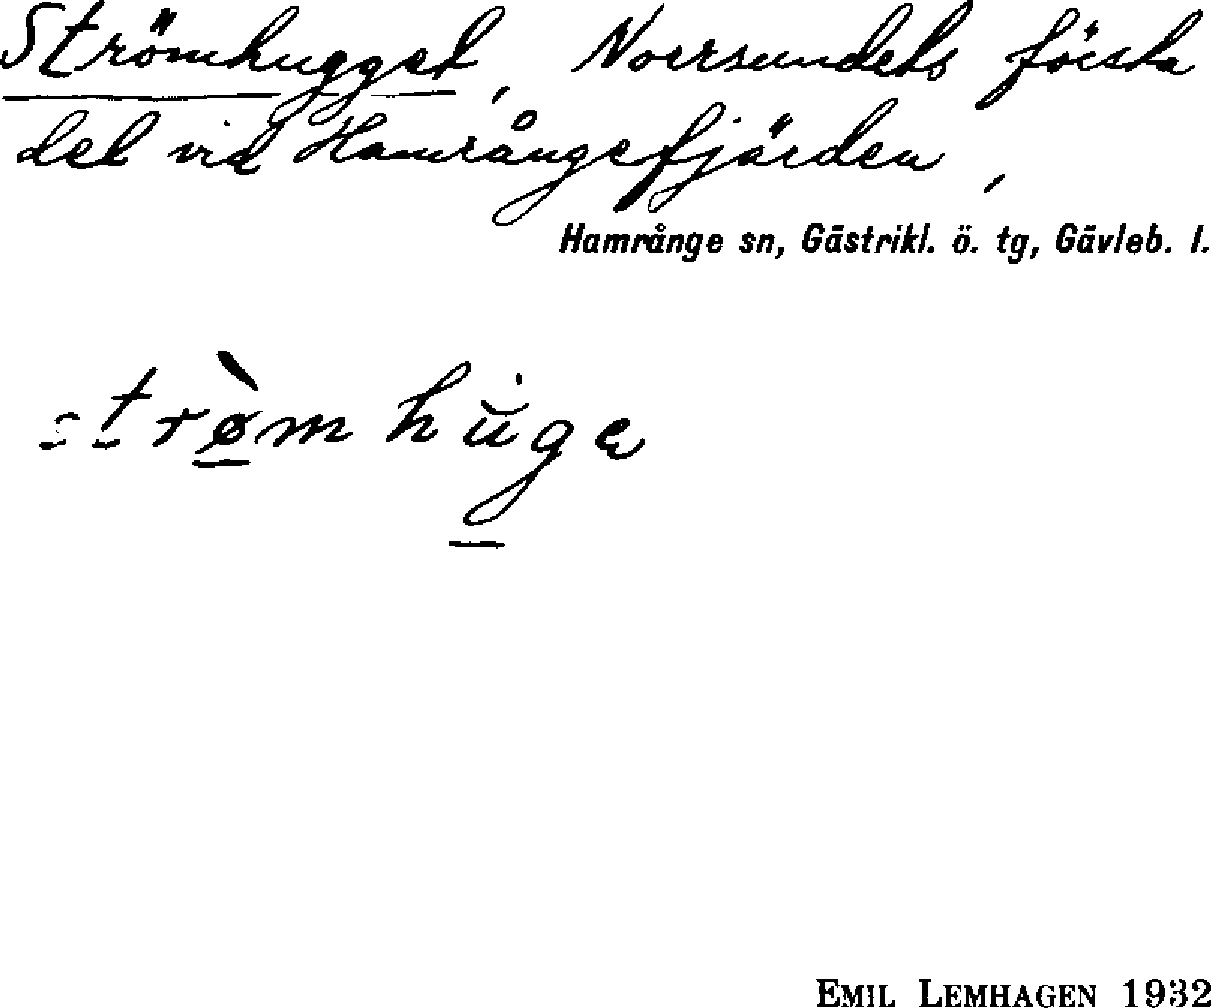 Strömhugget, Norrsundets första
del vid Hamrångefjärden,
Hamrånge sn, Gästrikl. ö. tg, Gävleb. l.
EMIL LEMHAGEN 1932